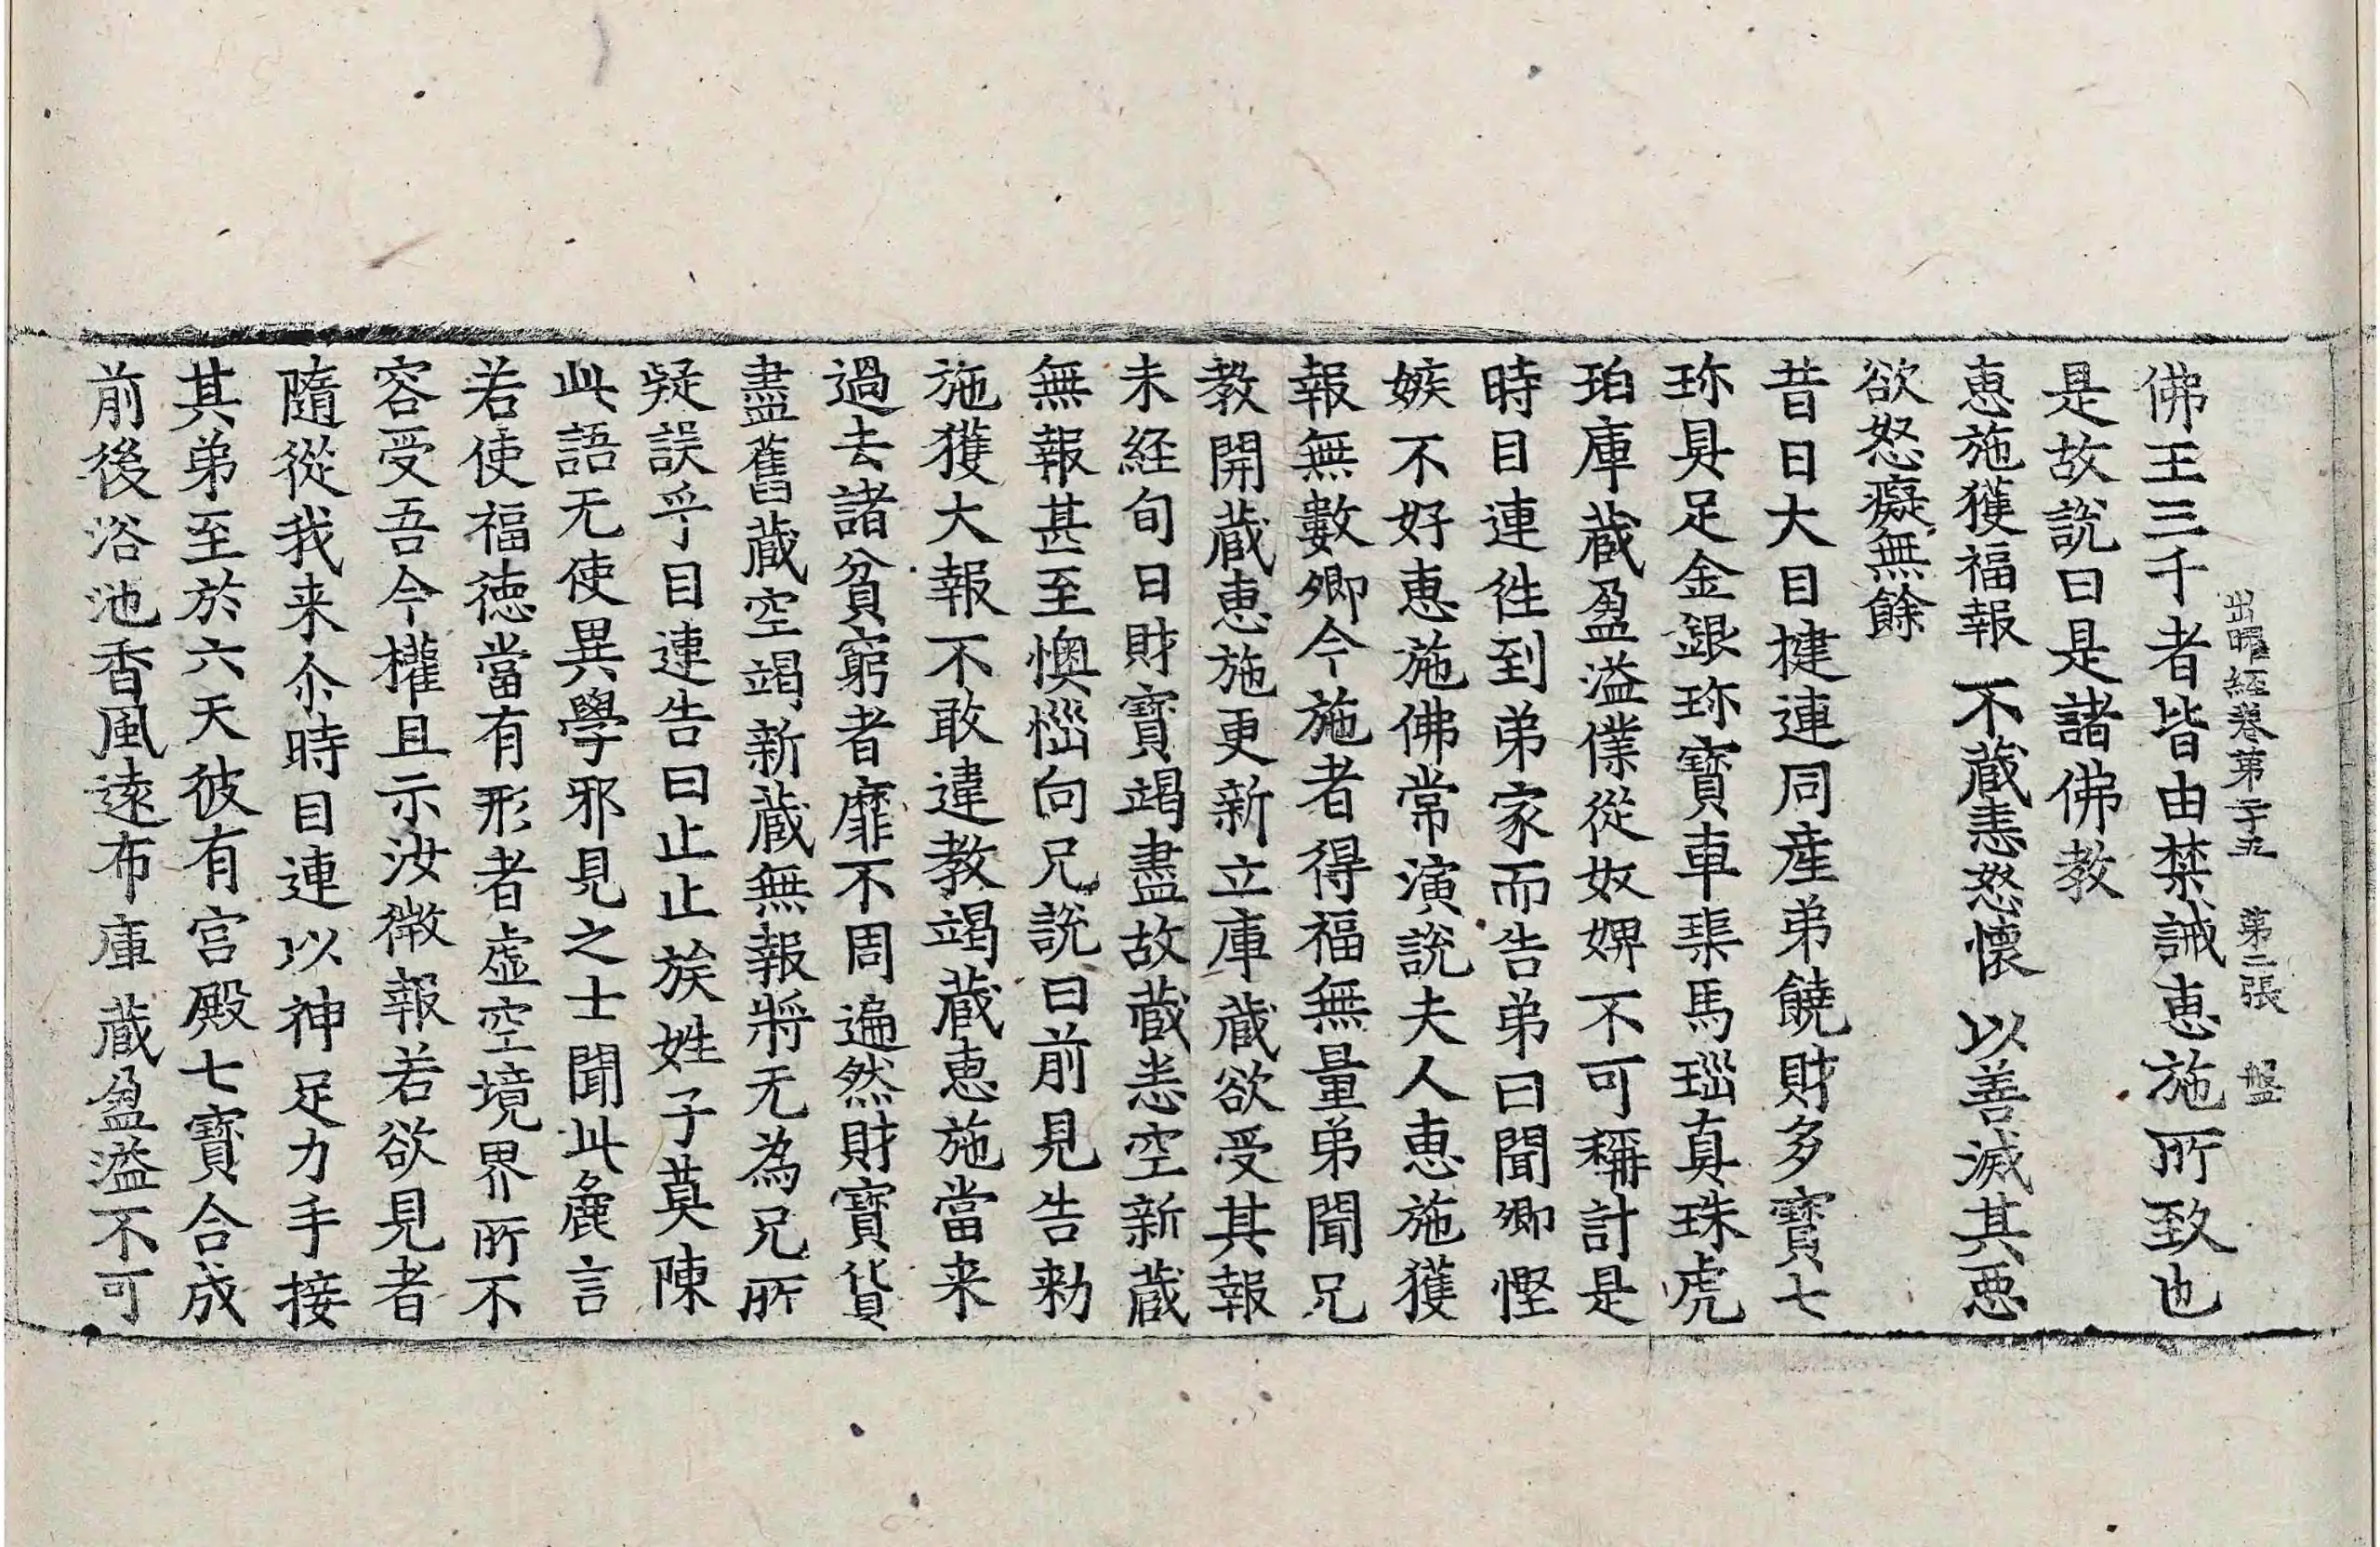 出曜經卷第二十五 第二張 盤
佛王三千者皆由禁誡惠施所致也
是故說曰是諸佛教
惠施獲福報 不蔵恚怒懷 以善滅其惡
欲怒癡無餘
昔日大目揵連同產弟饒財多寶七
珎具足金銀珎寶車𤦲馬瑙真珠虎
珀庫蔵盈溢僕從奴婢不可稱計是
時目連徃到弟家而告弟曰聞卿慳
嫉不好惠施佛常演說夫人惠施獲
報無數卿今施者得福無量弟聞兄
教開蔵惠施更新立庫蔵欲受其報
未経旬日財寶竭盡故蔵悉空新蔵
無報甚至懊惱向兄說曰前見告勑
施獲大報不敢違教竭蔵惠施當来
過去諸貧窮者靡不周遍然財寶貨
盡舊蔵空竭新蔵無報將无為兄所
疑誤乎目連告曰止止族姓子莫陳
此語无使異學邪見之士聞此麁言
若使福德當有形者虛空境界所不
容受吾今權且示汝徵報若欲見者
隨從我来尒時目連以神足力手接
其弟至於六天彼有宮殿七寶合成
前後浴池香風遠布庫蔵盈溢不可